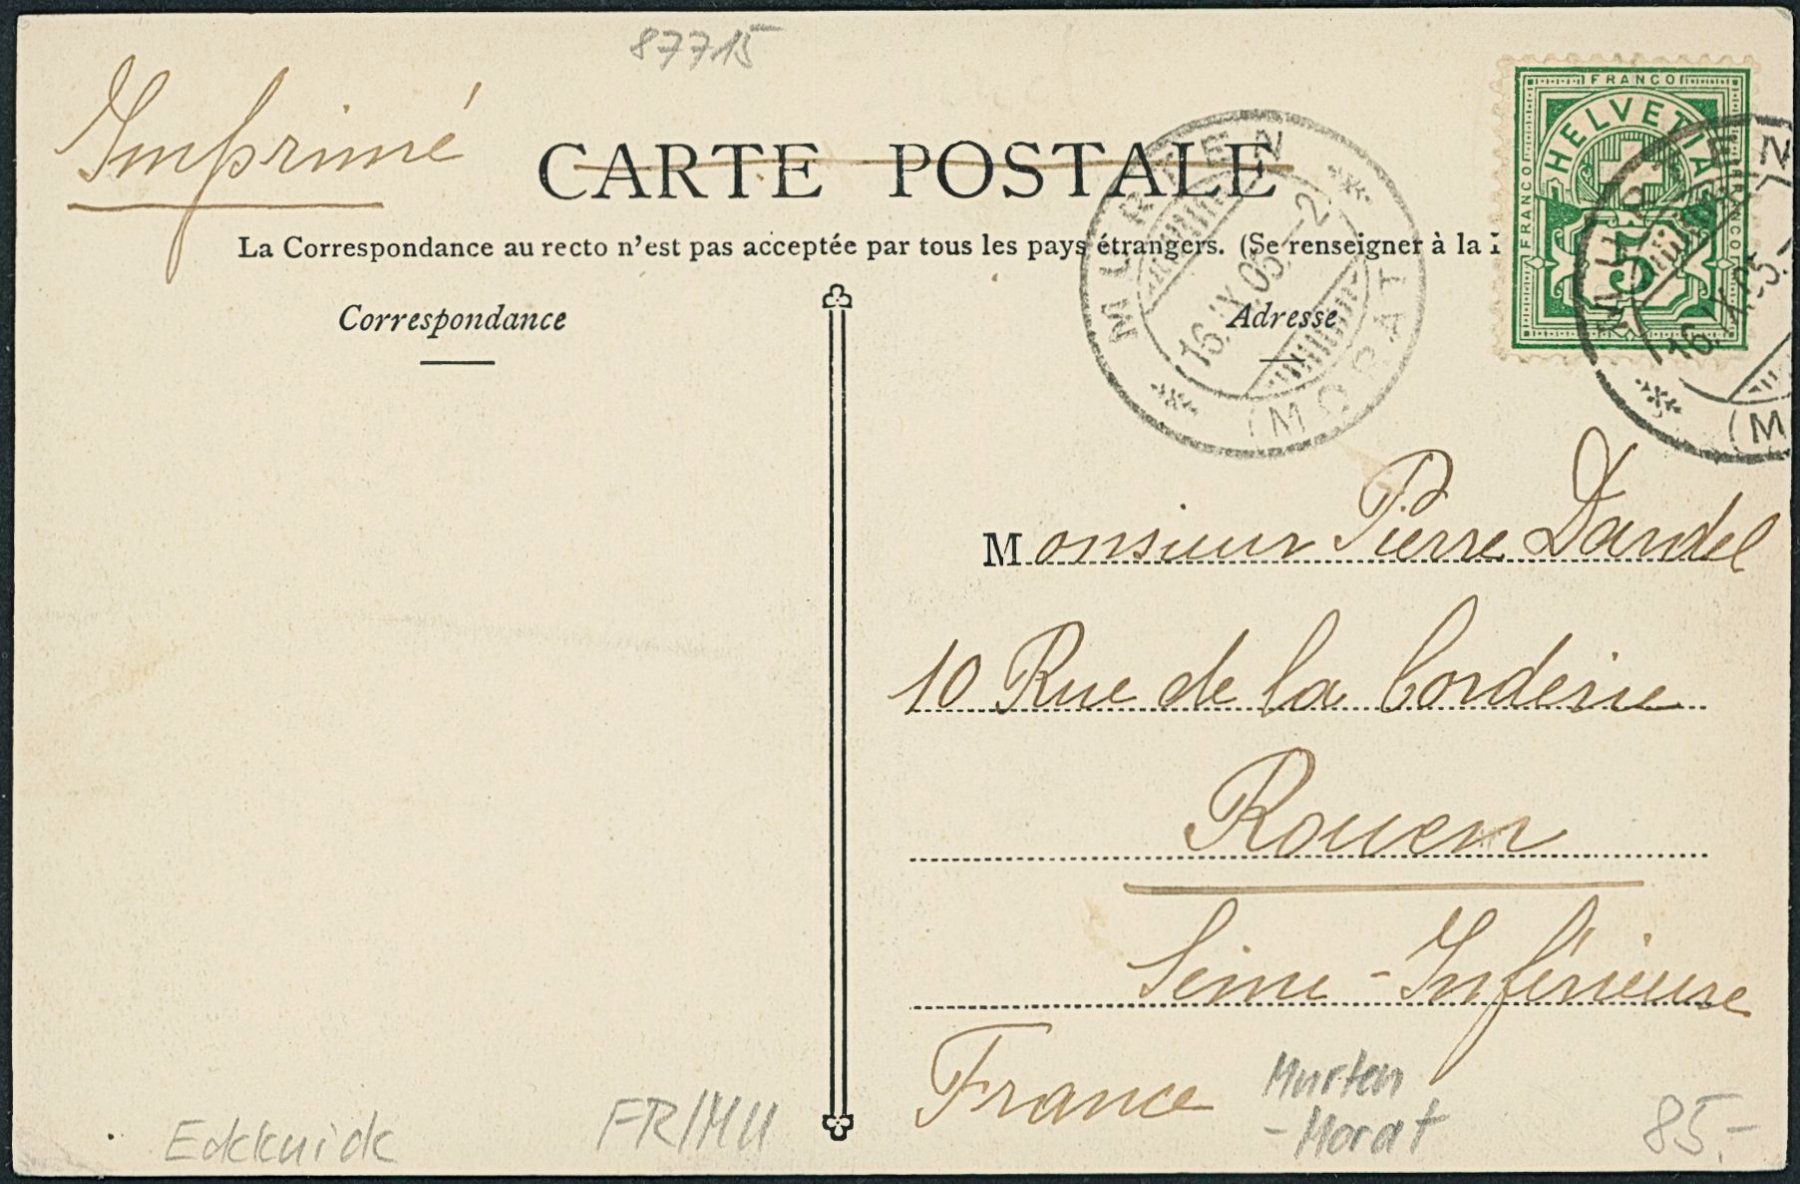 87715
Imprimé
CARTE POSTALE
La Correspondance au recto n'est pas acceptée par tous les pays étrangers. (Se renseigner à la
Correspondance
Adresse
FRANCO
HELVETIA
FRANCO
FRANCO
5
MURTEN
16.IX.05.-2
(MORAT
MURTEN
16.IX.05.
(M
Monsieur Pierre Dardel
10 Rue de la Corderie
Rouen
Seine-Inférieure
France
Murten
-Morat
FR/MU
85.-